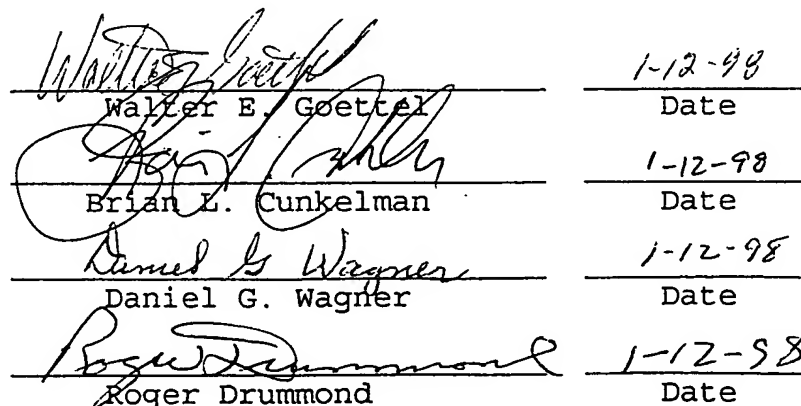 Walter Goettel 1-12-98
Walter E. Goettel Date
Brian L. Cunkelman 1-12-98
Brian L. Cunkelman Date
Daniel G Wagner 1-12-98
Daniel G. Wagner Date
Roger Drummond 1-12-98
Roger Drummond Date